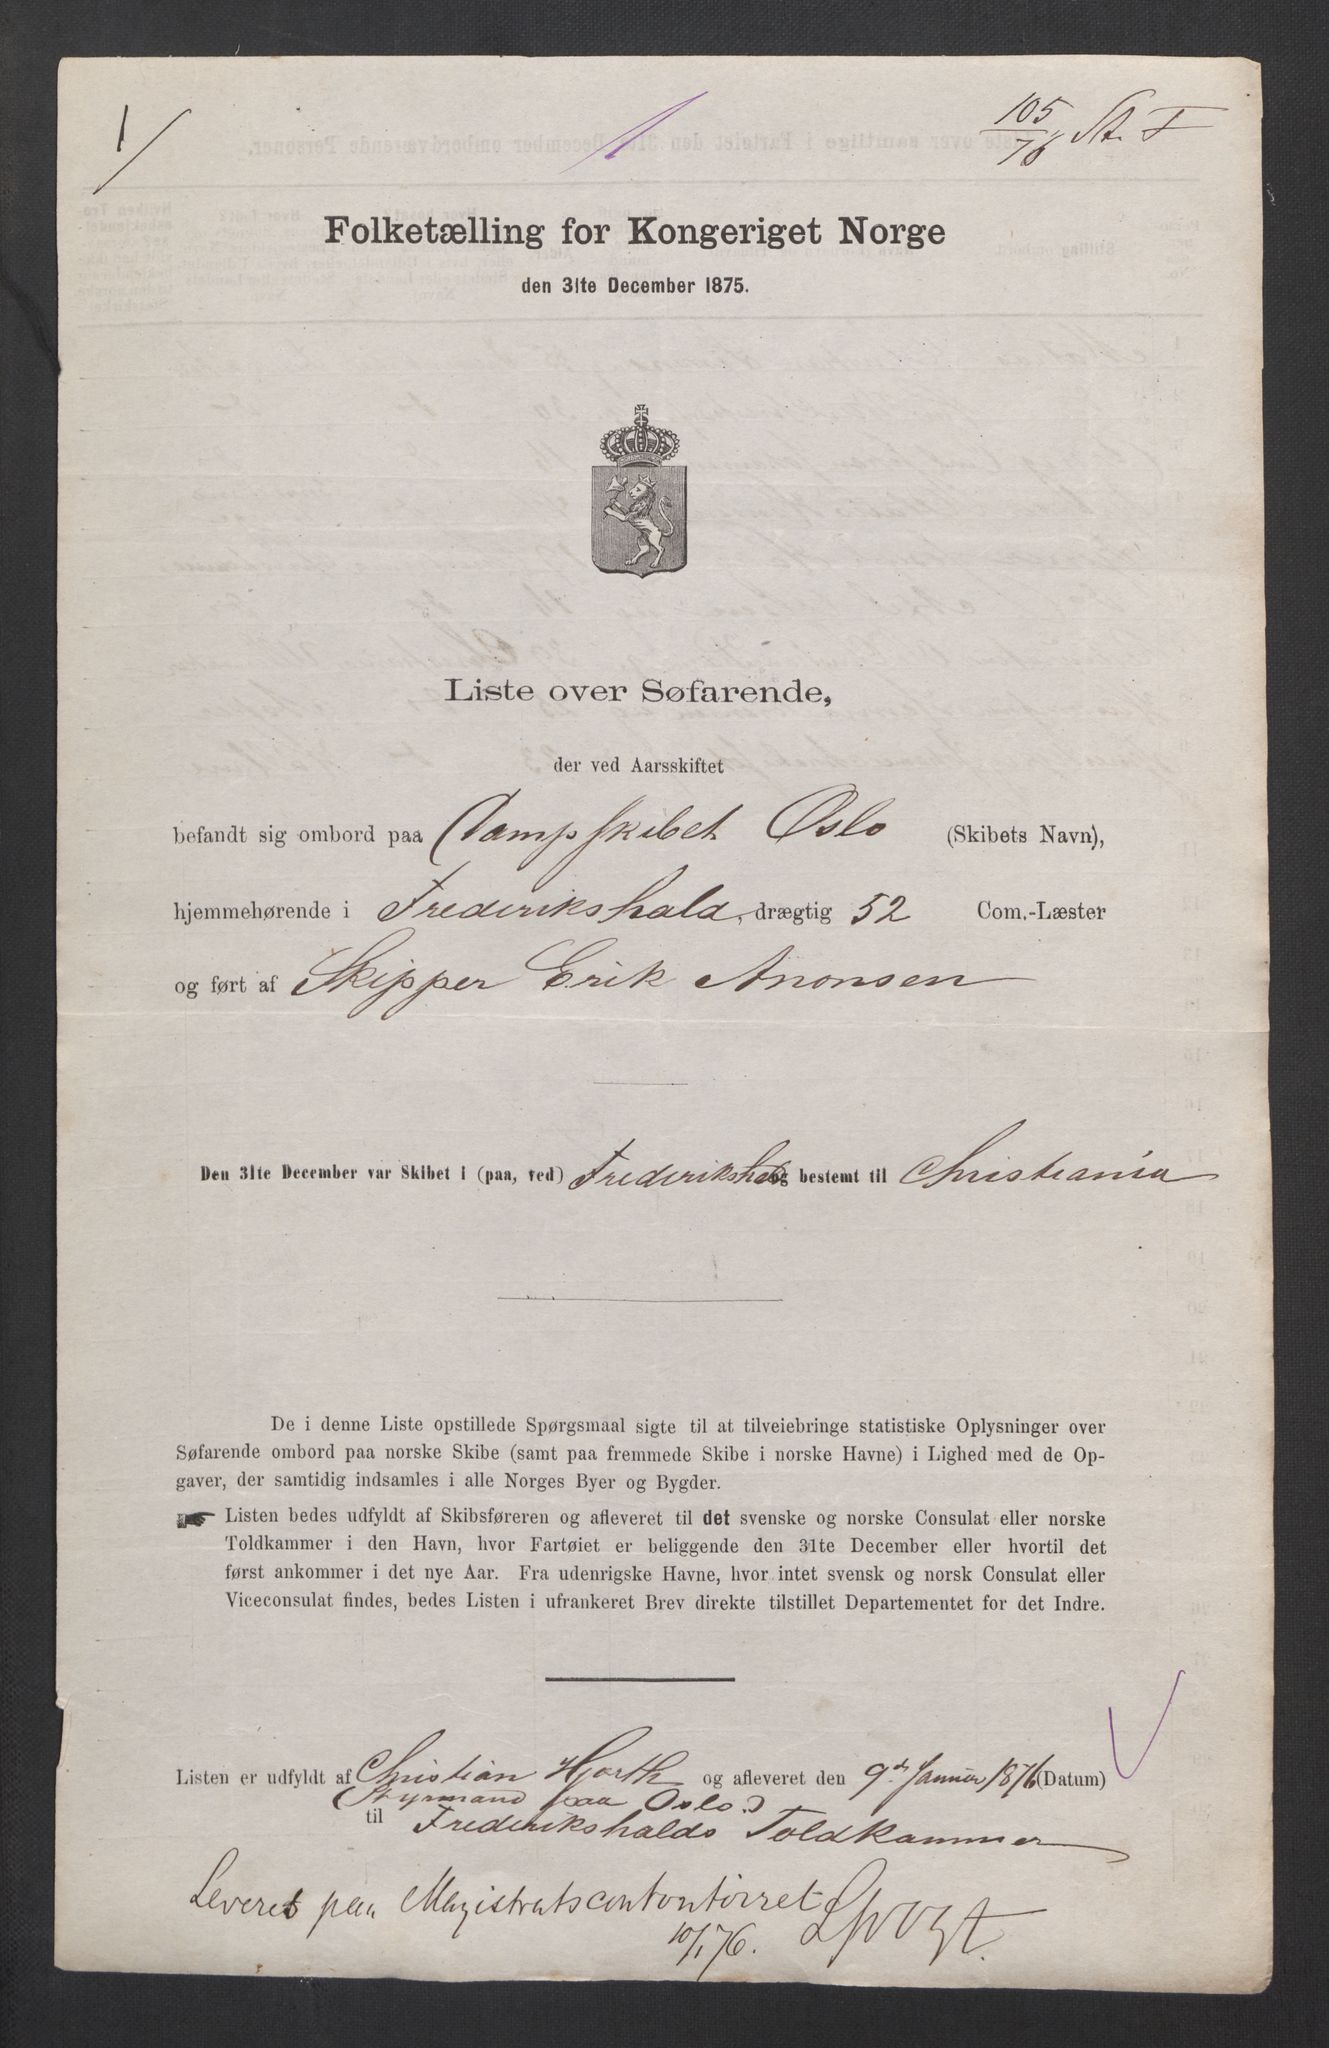 1/
105/76 St. F
Folketælling for Kongeriget Norge
den 31te December 1875.
Liste over Søfarende,
der ved Aarsskiftet
befandt sig ombord paa Dampskibet Oslo (Skibets Navn),
hjemmehørende i Frederikshald, drægtig 52 Com.-Læster
og ført af Skipper Erik Anonsen
Den 31te December var Skibet i (paa, ved) Frederikshald og bestemt til Christiania
De i denne Liste opstillede Spørgsmaal sigte til at tilveiebringe statistiske Oplysninger over
Søfarende ombord paa norske Skibe (samt paa fremmede Skibe i norske Havne) i Lighed med de Op-
gaver, der samtidig indsamles i alle Norges Byer og Bygder.
Listen bedes udfyldt af Skibsføreren og afleveret til det svenske og norske Consulat eller norske
Toldkammer i den Havn, hvor Fartøiet er beliggende den 31te December eller hvortil det
først ankommer i det nye Aar. Fra udenrigske Havne, hvor intet svensk og norsk Consulat eller
Viceconsulat findes, bedes Listen i ufrankeret Brev direkte tilstillet Departementet for det Indre.
Listen er udfyldt af Christian Hjorth og afleveret den 9de Januar 1876 (Datum)
(Styrmand paa Oslo.)
til Frederikshalds Toldkammer
Leveret paa Magistratscontontoirret
10/1 76.